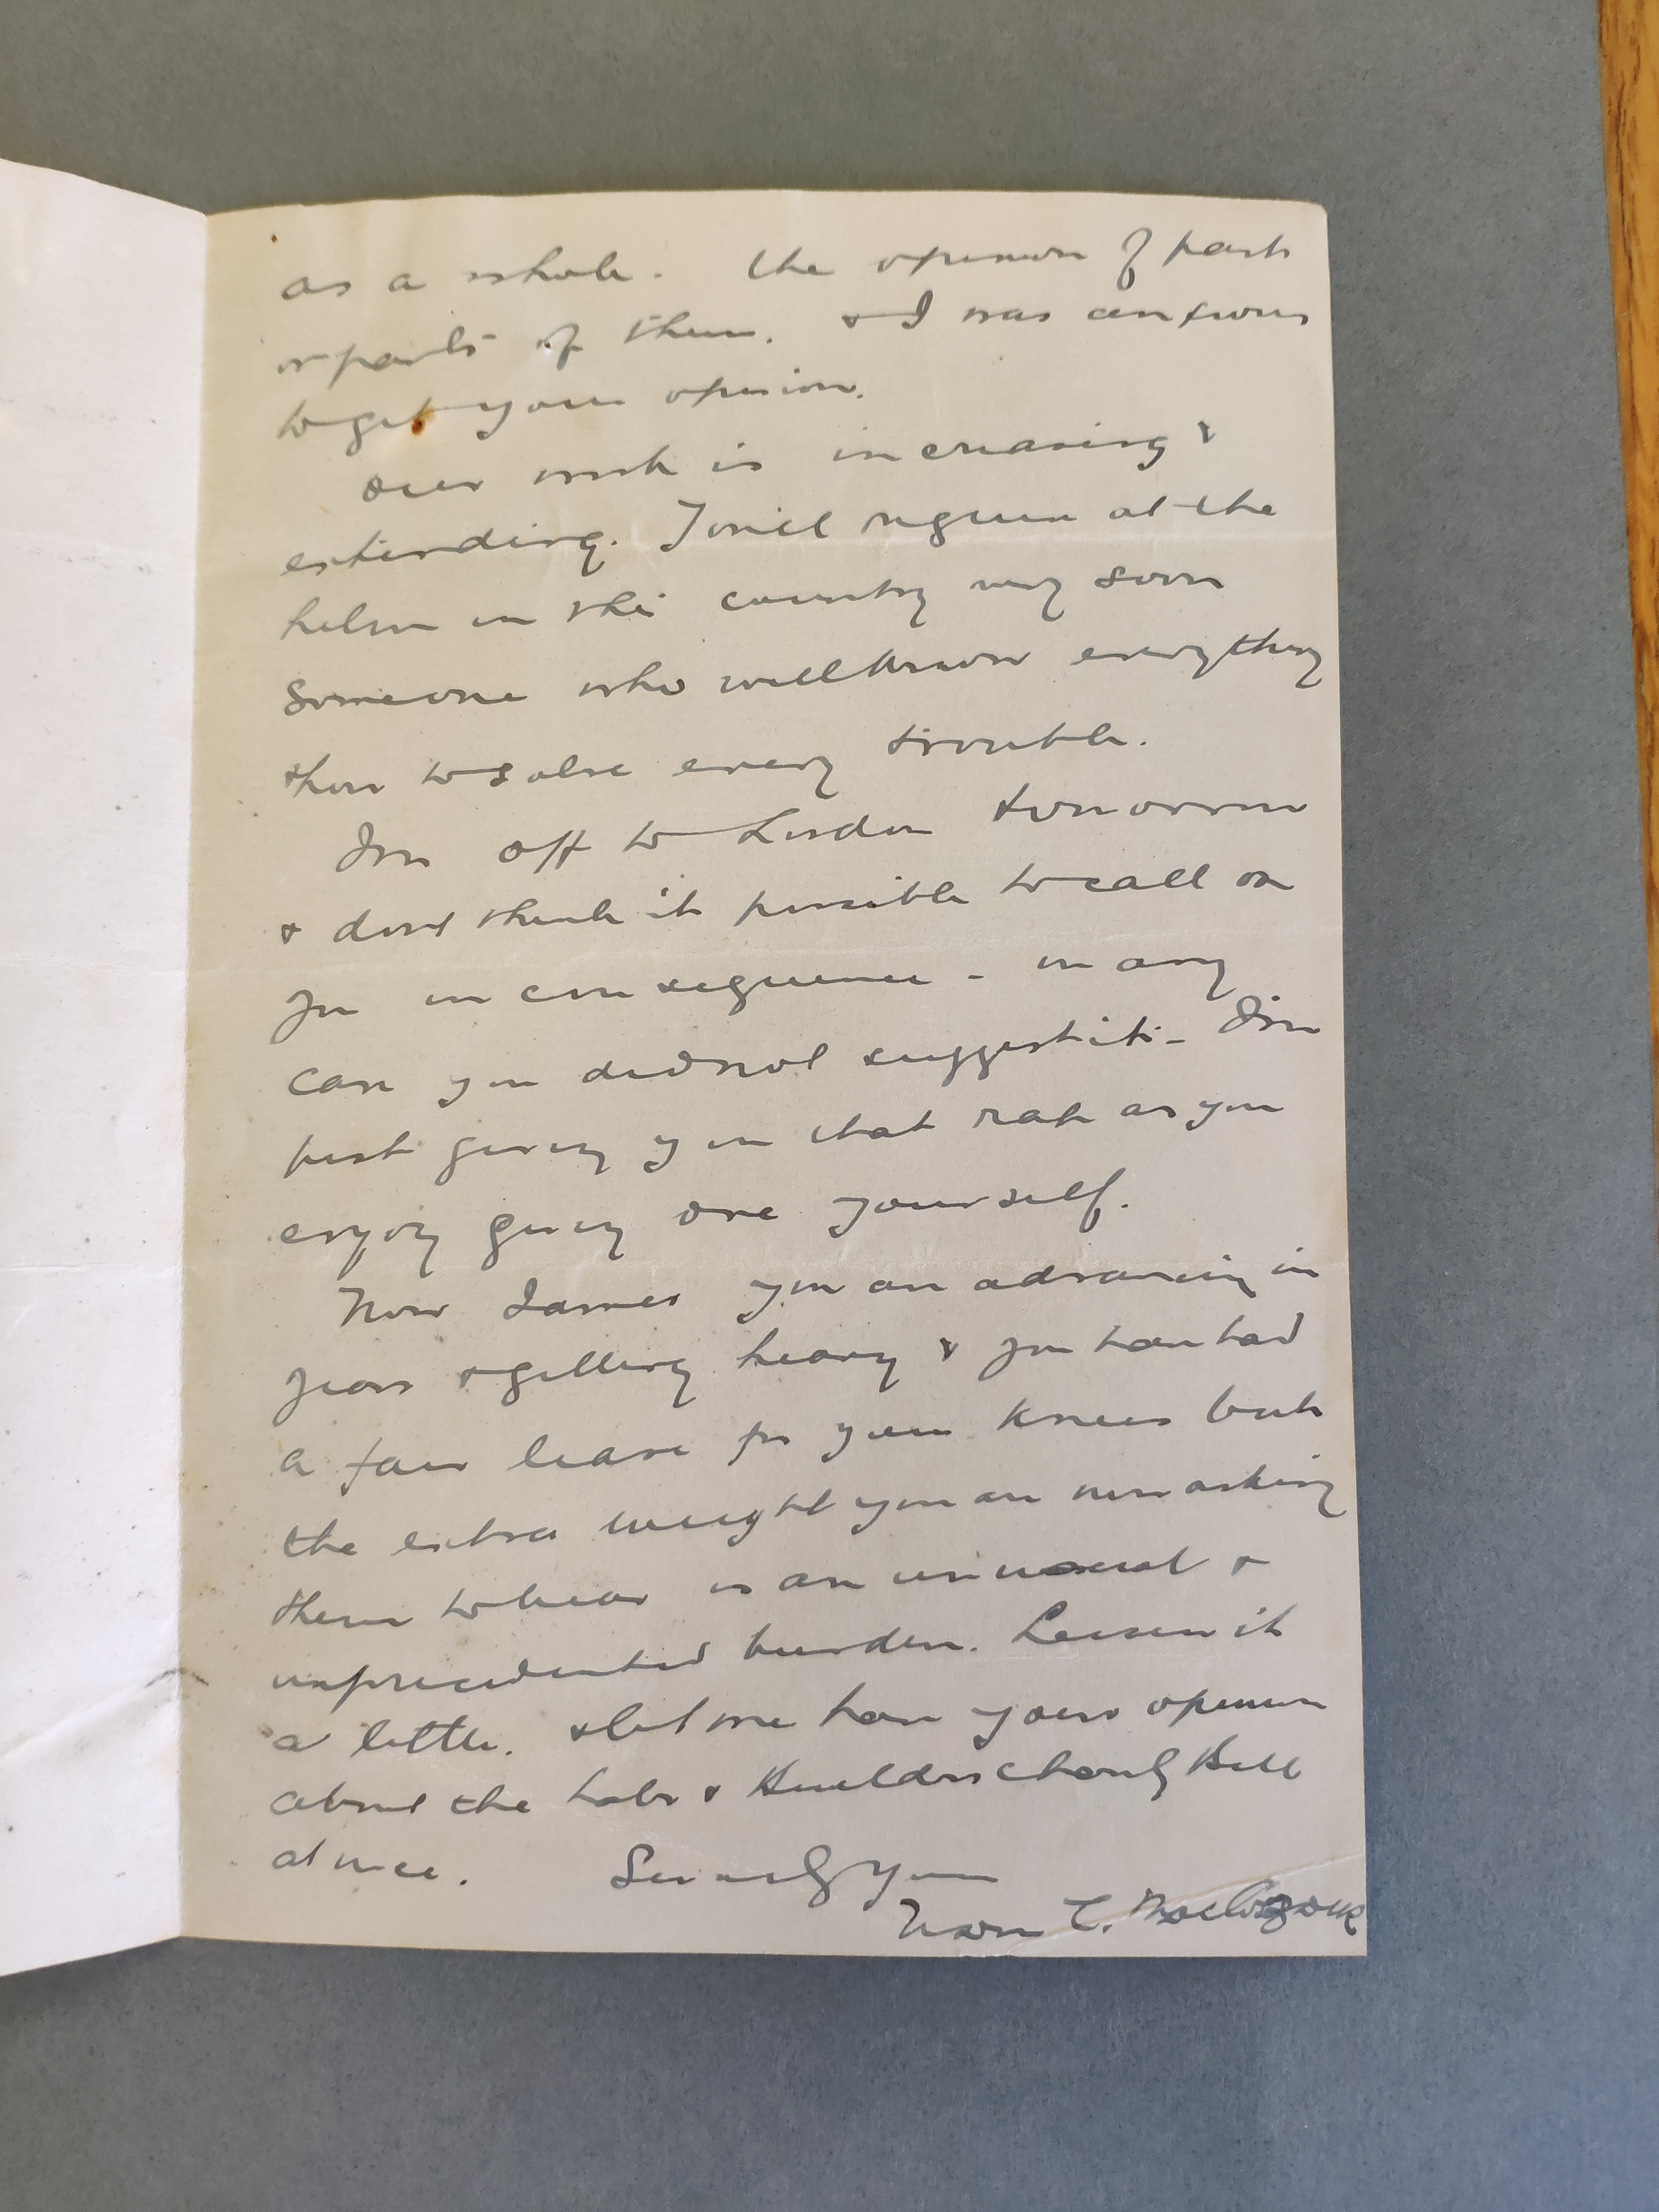 as a whole. The opinion of parts
or parts of them. & I was anxious
to get your opinion.
Our work is increasing &
extending. I will require at the
helm in this country very soon
someone who will know everything
how to solve every trouble.
I'm off to London tomorrow
& dont think it possible to call on
you in consequence - in any
case you did not suggest it - I'm
just giving you that rap as you
enjoy giving one yourself.
Now James you are advancing in
years & getting heavy & you have had
a fair lease for your knees but
the extra weight you are now asking
them to bear is an unusual &
unprecedented burden. Lessen it
a little. & let me have your opinion
about the Labr & Builders Bill
at once. Sincerely Yours